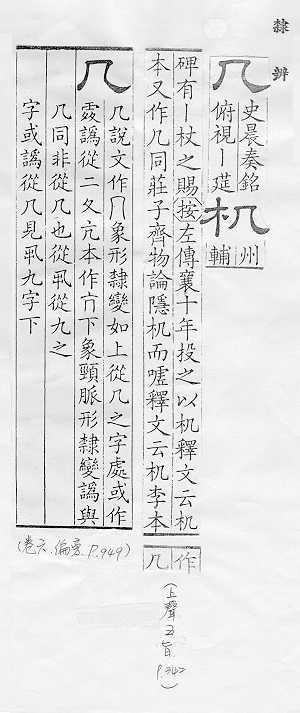 隸辨
几 史晨奏銘
俯視丨筵 机 州
輔
碑有丨杖之賜按左傳襄十年投之以机釋文云机
本又作几同莊子齊物論隱机而噓釋文云机李本
作
几
(上聲五旨 P.342)
几 几說文作𠘨象形隸變如上從几之字處或作
譌從二夂亢本作下象頸脈形隸變譌與
几同非從几也從丮從九之
字或譌從几見丮九字下
(卷六.偏旁 P.949)